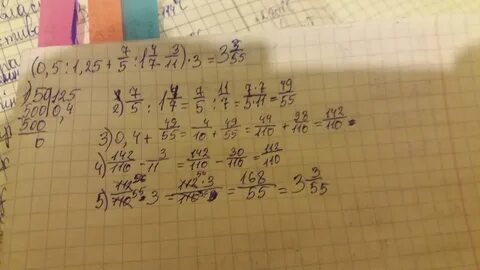 (0,5 : 1,25 + 7/5 : 1 4/7 - 3/11) · 3 = 3 3/55
1) 50 | 125
500 | 0,4
500
0
2) 7/5 : 1 4/7 = 7/5 : 11/7 = 7·7/5·11 = 49/55
3) 0,4 + 49/55 = 4/10 + 49/55 = 44/110 + 98/110 = 142/110
4) 142/110 - 3/11 = 142/110 - 30/110 = 112/110
5) 112/110 · 3 = 112·3/110 = 168/55 = 3 3/55